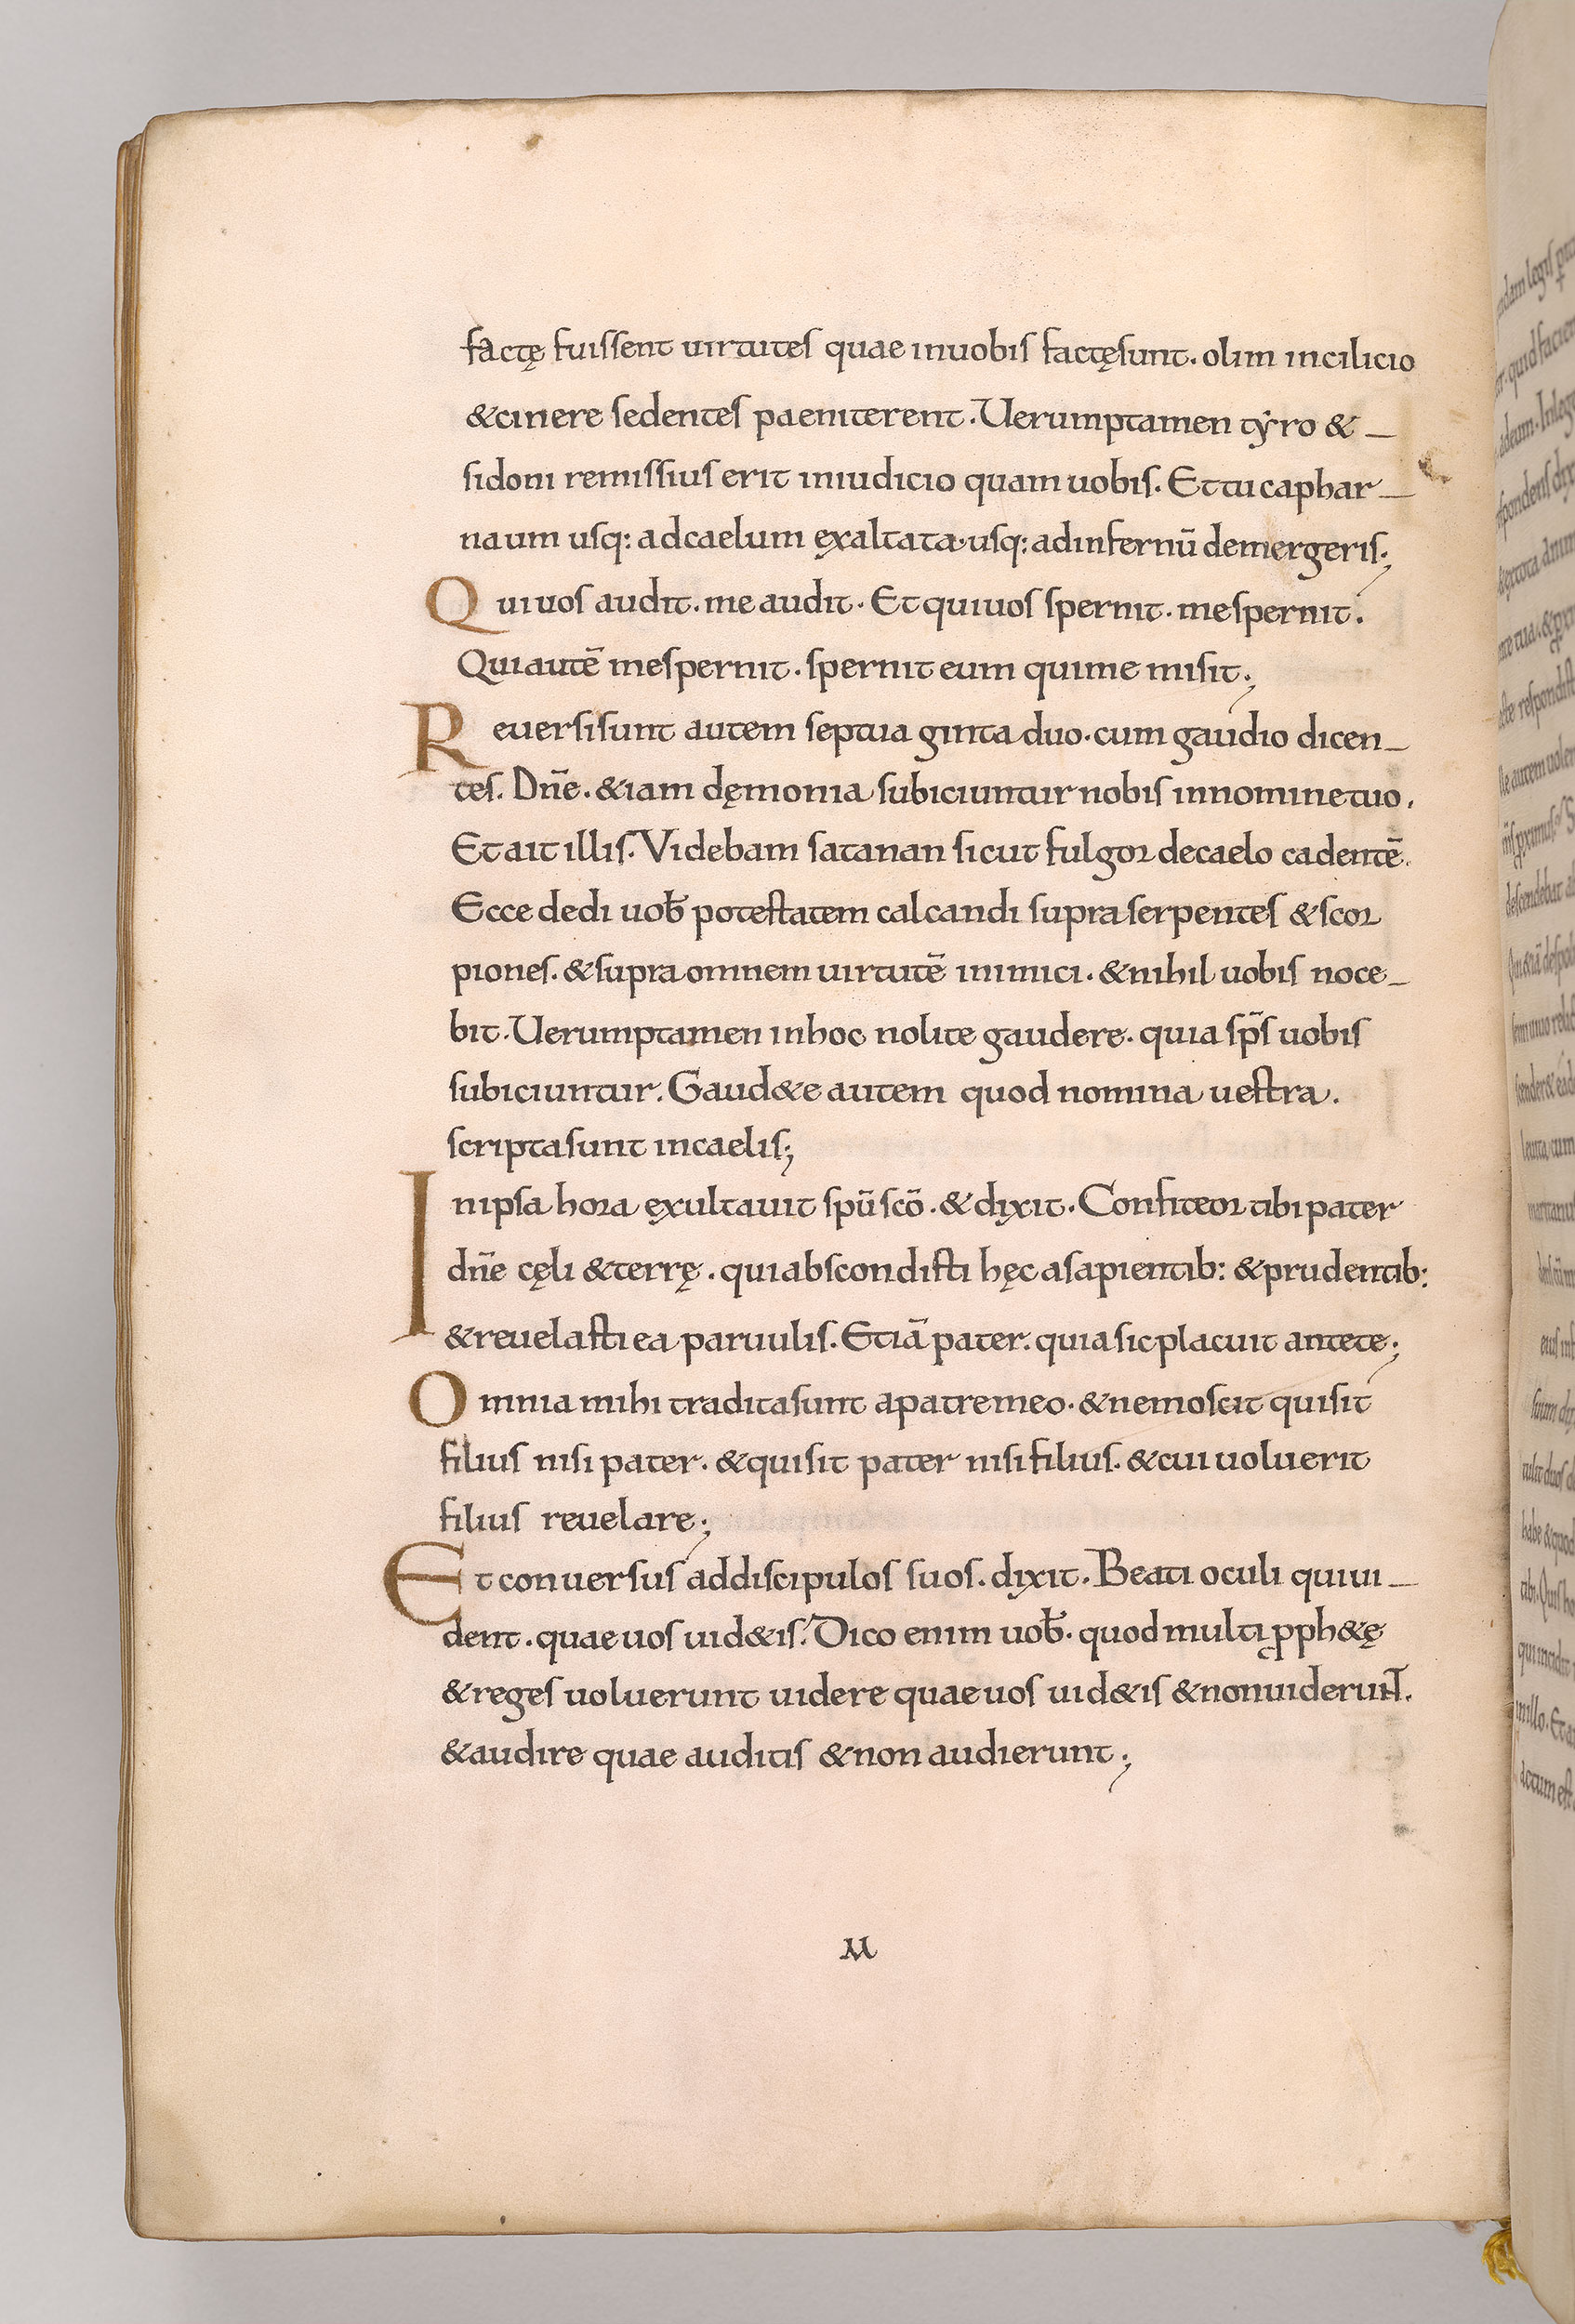 factę fuissent uirtutes quae inuobis factęsunt. olim incilicio
&cinere sedentes paeniterent. Uerumptamen tẏro &
sidoni remissius erit iniudicio quam uobis. Et tu caphar
naum usq: adcaelum exaltata. usq: adinfernū demergeris;
Qui uos audit. me audit. Et qui uos spernit. me spernit.
Qui autē me spernit. spernit eum qui me misit;
Reuersi sunt autem septuaginta duo. cum gaudio dicen
tes. Dn̄e. &iam dęmonia subiciuntur nobis innomine tuo.
Et ait illis. Videbam satanan sicut fulgor decaelo cadentē.
Ecce dedi uob̄ potestatem calcandi supra serpentes &scor
piones. &supra omnem uirtutē inimici. &nihil uobis noce
bit. Uerumptamen inhoc nolite gaudere. quia sp̄s uobis
subiciuntur. Gaud&e autem quod nomina uestra.
scripta sunt incaelis;
In ipsa hora exultauit spū scō. &dixit. Confiteor tibi pater
dn̄e cęli &terrę. qui abscondisti hęc asapientib: &prudentib:
&reuelasti ea paruulis. Etiā pater. quia sic placuit ante te;
Omnia mihi tradita sunt apatre meo. &nemo scit qui sit
filius nisi pater. &qui sit pater nisi filius. &cui uoluerit
filius reuelare;
Et conuersus addiscipulos suos. dixit. Beati oculi qui ui
dent. quae uos uid&is. Dico enim uob̄. quod multi ꝓph&ę
&reges uoluerunt uidere quae uos uid&is &non uiderunt̄.
&audire quae auditis &non audierunt;
M